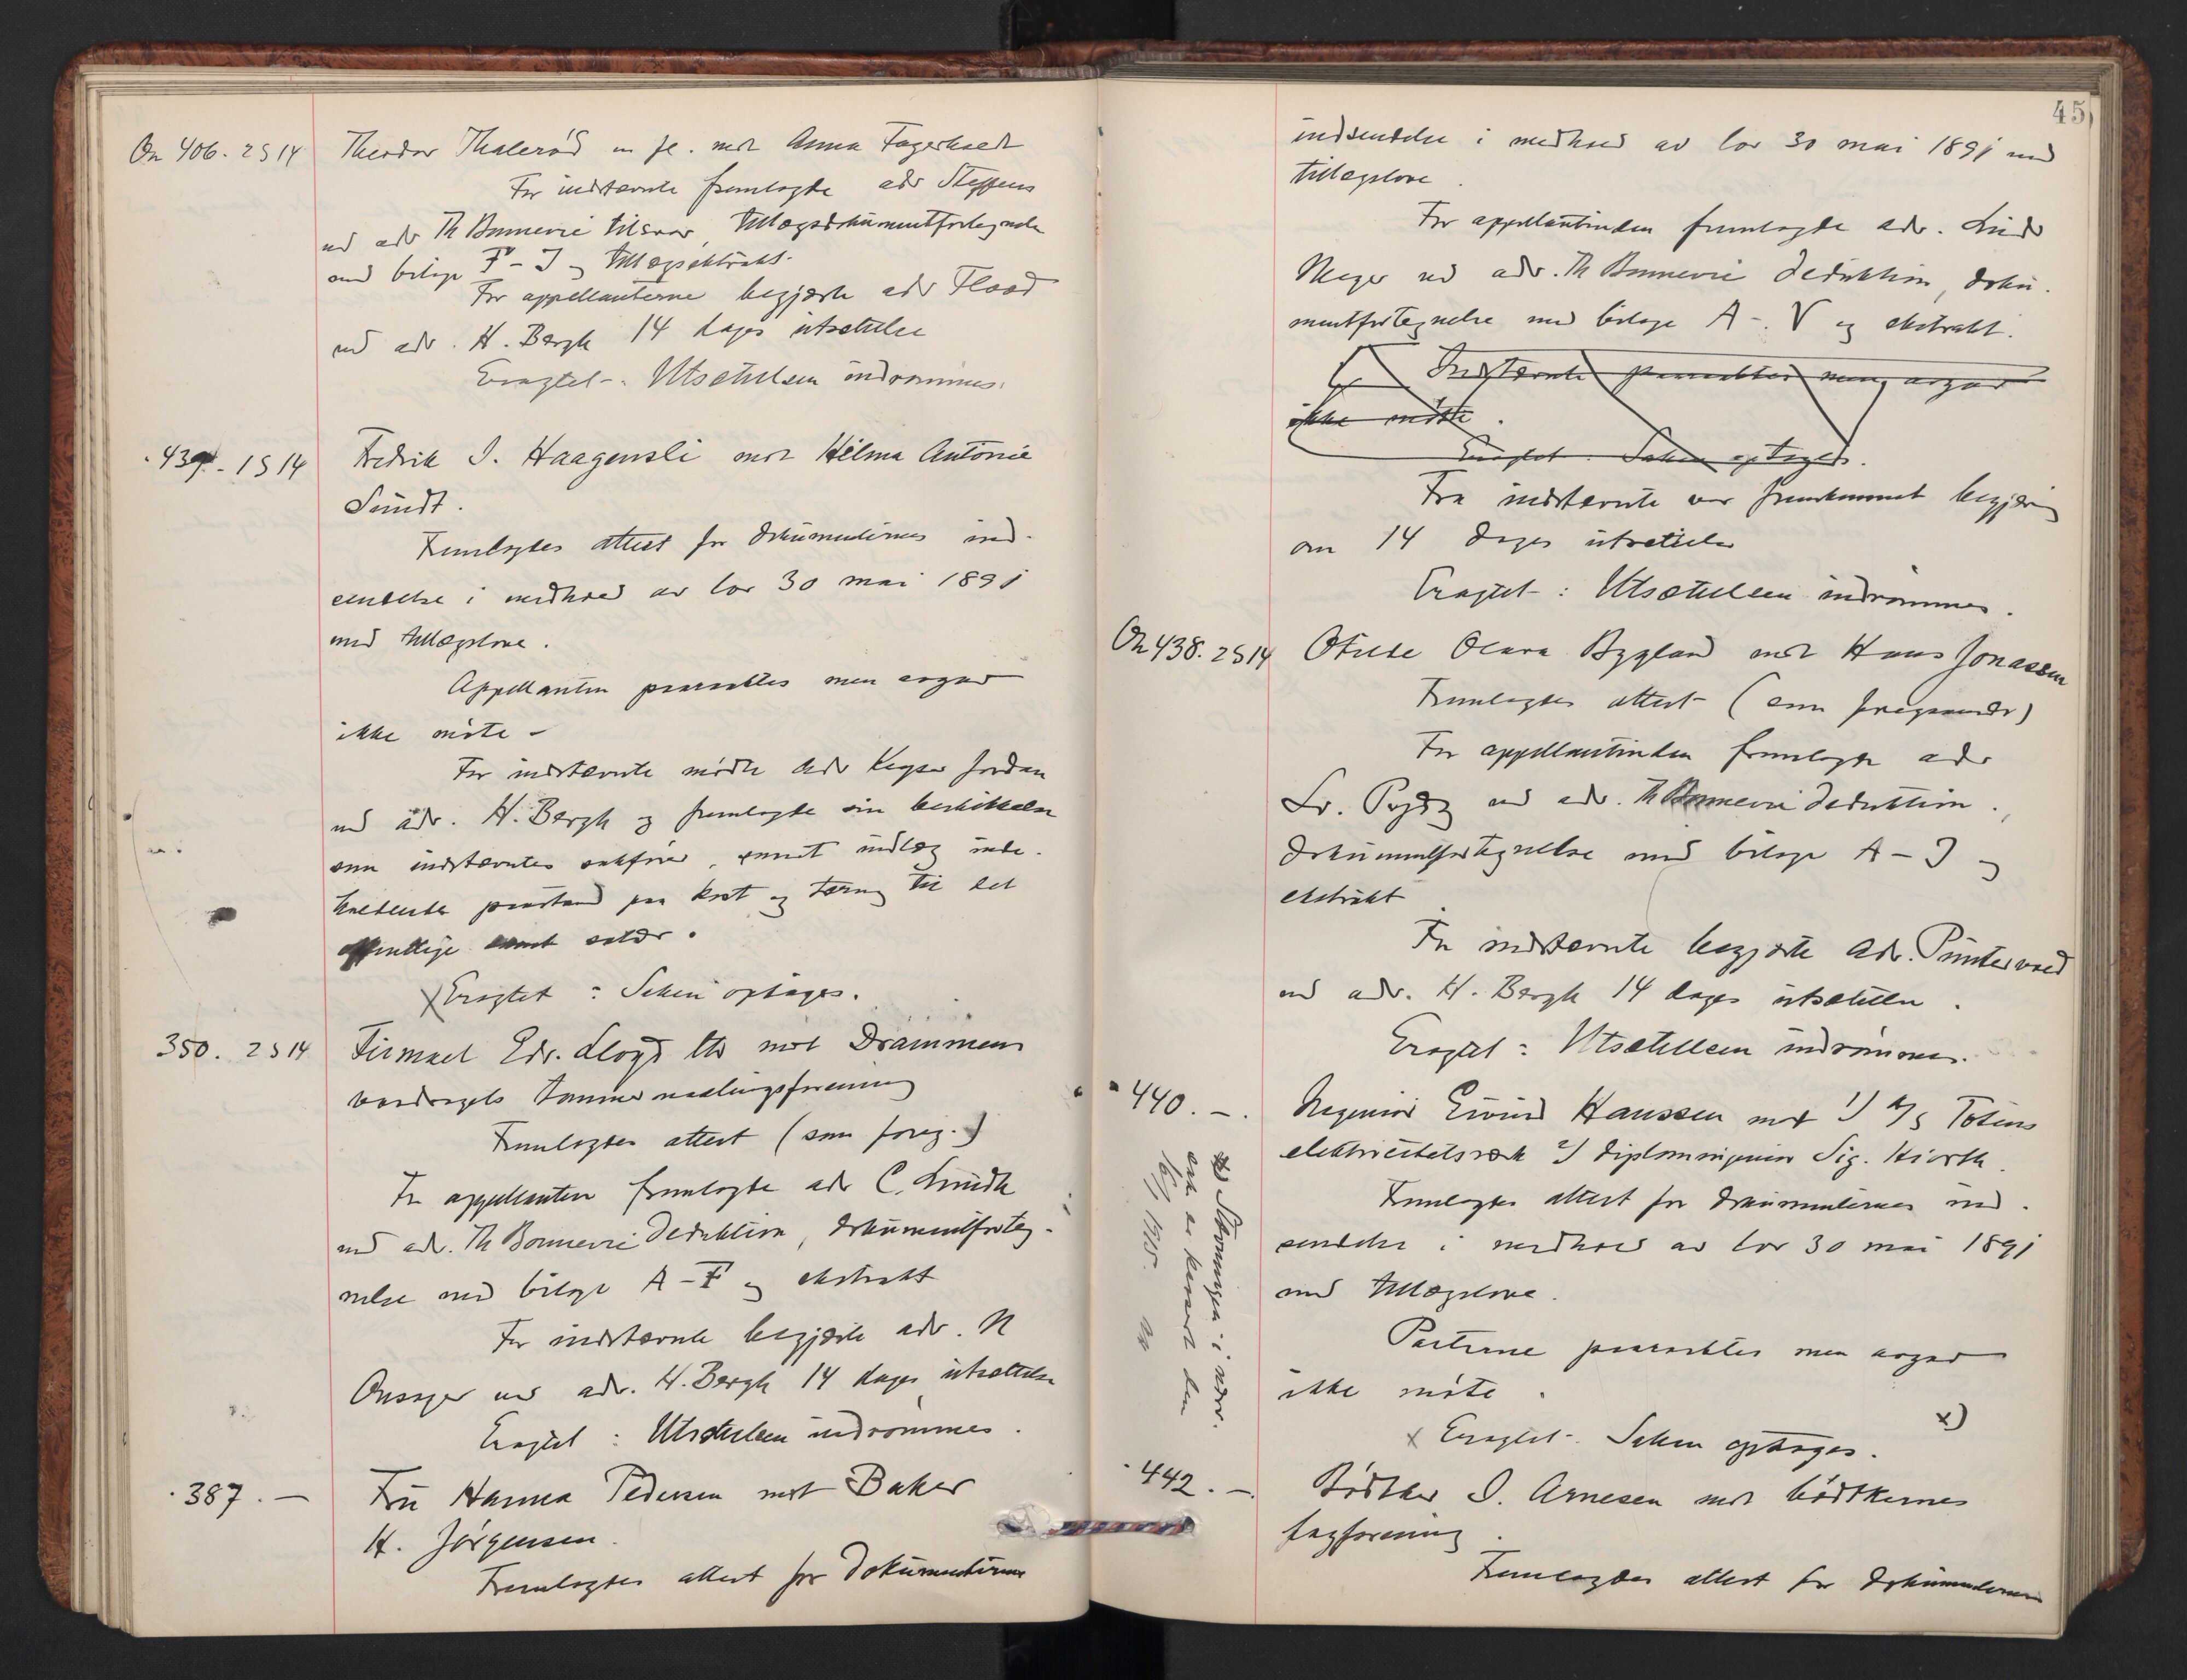 On 406. 2 S 14 Theodor Thalerød m fl. mot Anna Fagerholt
For indstevnte fremlagte adv Steffens
ved adv Th Bonnevie tilsvar, tillægsdokumentfortegnelse
med bilage F - J og tillægsekstrakt.
For appellanterne begjærte adv Flood
ved adv. H. Bergh 14 dages utsættelse
Eragtet: Utsættelsen indrømmes.
439 - 1 S 14 Fredrik I. Haagensli mot Hilma Antonie
Sundt.
Fremlagdes attest for dokumenternes ind-
sendelse i medhold av lov 30 mai 1891
med tillægslove.
Appellanten paaraabtes men avgav
ikke møte -
For indstevnte mødte adv Keyser Jordan
ved adv. H. Bergh og fremlagde sin beskikkelse
som indstevntes sakfører, samt indlæg inde-
holdende paastand paa kost og tæring til det
offentlige samt salær.
x Eragtet: Saken optages.
350. 2 S 14 Firmaet Edv. Lloyd Ltd mot Drammens
vasdrags tømmermaalingsforening
Fremlagdes attest (som foreg.)
For appellanten fremlagde adv C. Lundh
ved adv. Th Bonnevie deduktion, dokumentforteg-
nelse med bilage A - F og ekstrakt
For indstevnte begjærte adv. N
Onsager ved adv. H. Bergh 14 dages utsættelse
Eragtet: Utsættelsen indrømmes.
387. — Fru Hanna Pedersen mot Baker
H. Jørgensen.
Fremlagdes attest for dokumenternes
45
indsendelse i medhold av lov 30 mai 1891 med
tillægslove.
For appellantinden fremlagde adv. Lind
Meyer ved adv. Th Bonnevie deduktion, doku-
mentfortegnelse med bilage A - V og ekstrakt.
Indstevnte paaraabtes men avgav
ikke møte.
Eragtet: Saken optages.
Fra indstevnte var fremkommet begjæring
om 14 dages utsættelse
Eragtet: Utsættelsen indrømmes.
On 438. 2 S 14 Otilde Olava Bygland mot Hans Jonassen
Fremlagdes attest (som foregaaende)
For appellantinden fremlagde adv
ved adv. Th Bonnevie deduktion,
dokumentfortegnelse med bilage A - J og
ekstrakt.
For indstevnte begjærte Adv. Puntervold
ved adv. H. Bergh 14 dages utsættelse.
Eragtet: Utsættelsen indrømmes.
440. — Ingeniør Eivind Hanssen mot 1) A/S Totens
elektricitetsverk 2) diplomingeniør Sig. Hiorth.
Fremlagdes attest for dokumenternes ind-
sendelse i medhold av lov 30 mai 1891
med tillægslove.
Parterne paaraabtes men avgav
ikke møte.
x Eragtet: Saken optages. x)
x) Stevningen i nærv.
sak er hævet den
16/1 1915.
442. — Bødker I. Arnesen mot bødkernes
fagforening.
Fremlagdes attest for dokumenternes